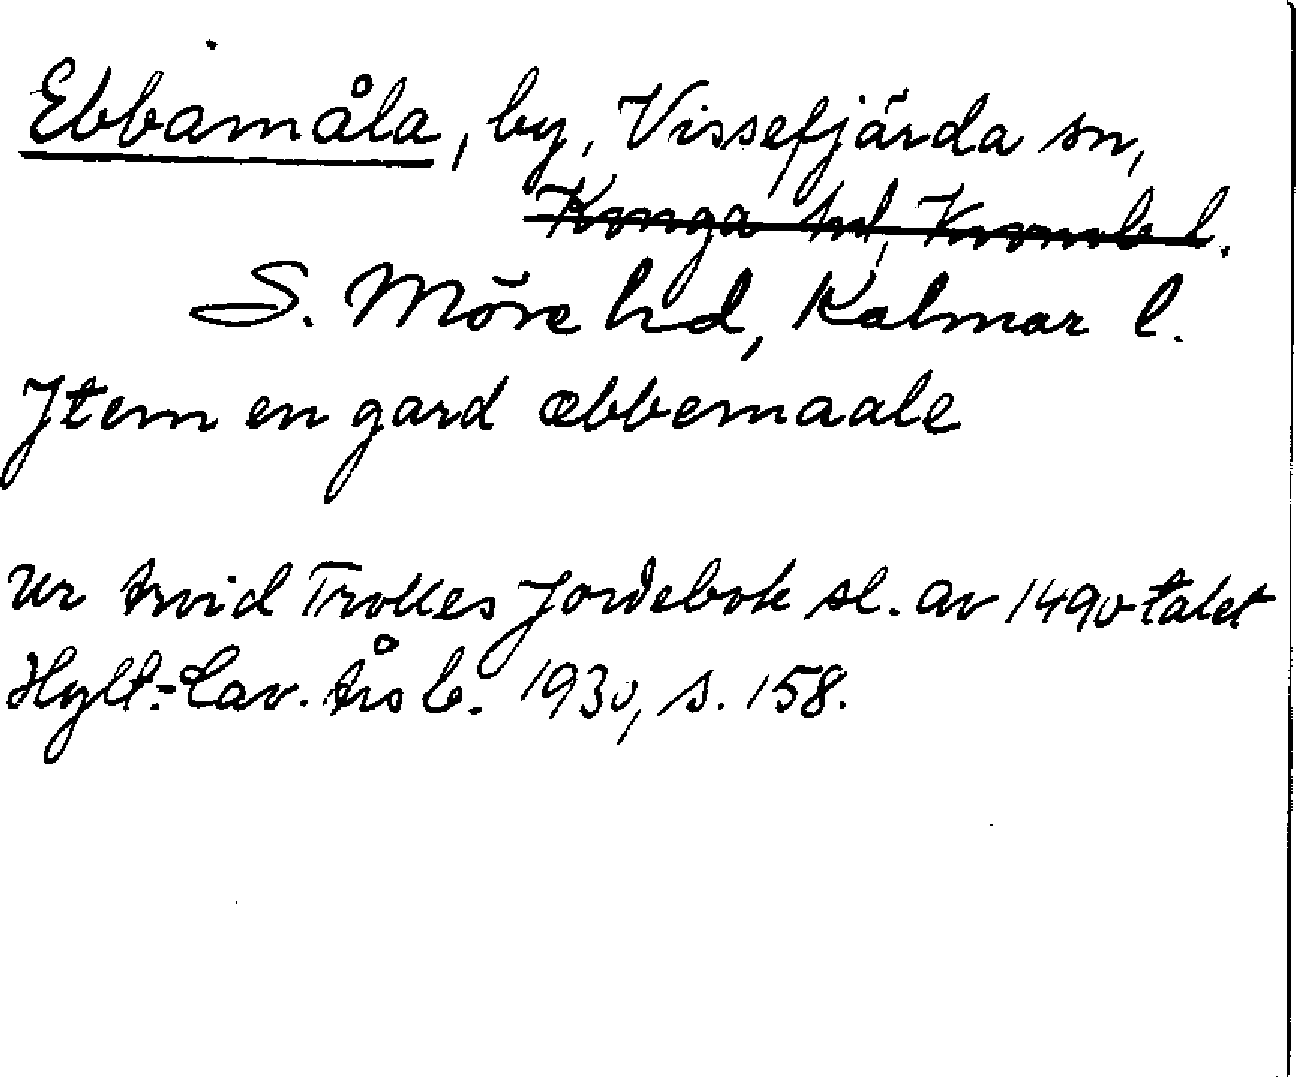 Ebbamåla, by, Vissefjärda sn,
Konga hd, Kronob l.
S. Möre hd, Kalmar l.
Jtem en gard æbbemaale
Ur Arvid Trolles Jordebok sl. av 1490-talet
Hylt.-Cav. Årsb. 1930, s. 158.